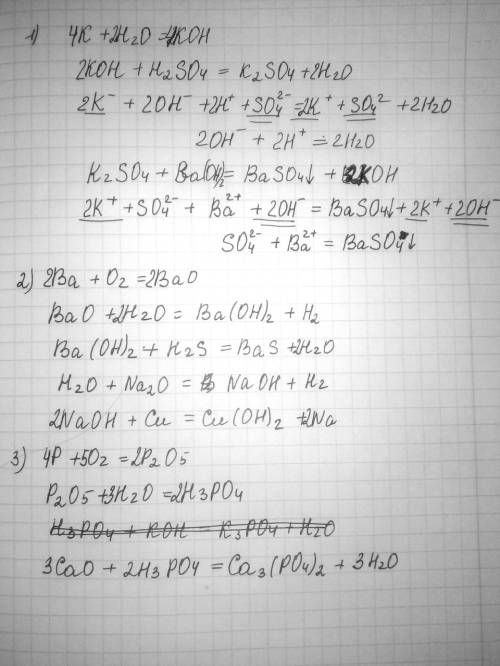 1) 4K + 2H2O = 4KOH
2KOH + H2SO4 = K2SO4 + 2H2O
2K⁻ + 2OH⁻ + 2H⁺ + SO4²⁻ = 2K⁺ + SO4²⁻ + 2H2O
2OH⁻ + 2H⁺ = 2H2O
K2SO4 + Ba(OH)2 = BaSO4↓ + 2KOH
2K⁺ + SO4²⁻ + Ba²⁺ + 2OH⁻ = BaSO4↓ + 2K⁺ + 2OH⁻
SO4²⁻ + Ba²⁺ = BaSO4↓
2) 2Ba + O2 = 2BaO
BaO + 2H2O = Ba(OH)2 + H2
Ba(OH)2 + H2S = BaS + 2H2O
H2O + Na2O = NaOH + H2
2NaOH + Cu = Cu(OH)2 + 2Na
3) 4P + 5O2 = 2P2O5
P2O5 + 3H2O = 2H3PO4
H3PO4 + KOH = K3PO4 + H2O
3CaO + 2H3PO4 = Ca3(PO4)2 + 3H2O